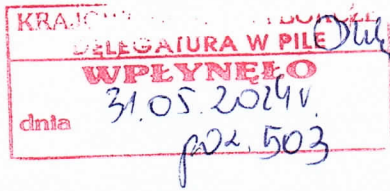 DELEGATURA W PILE
WPŁYNĘŁO
dnia 31.05.2024r.
poz. 503